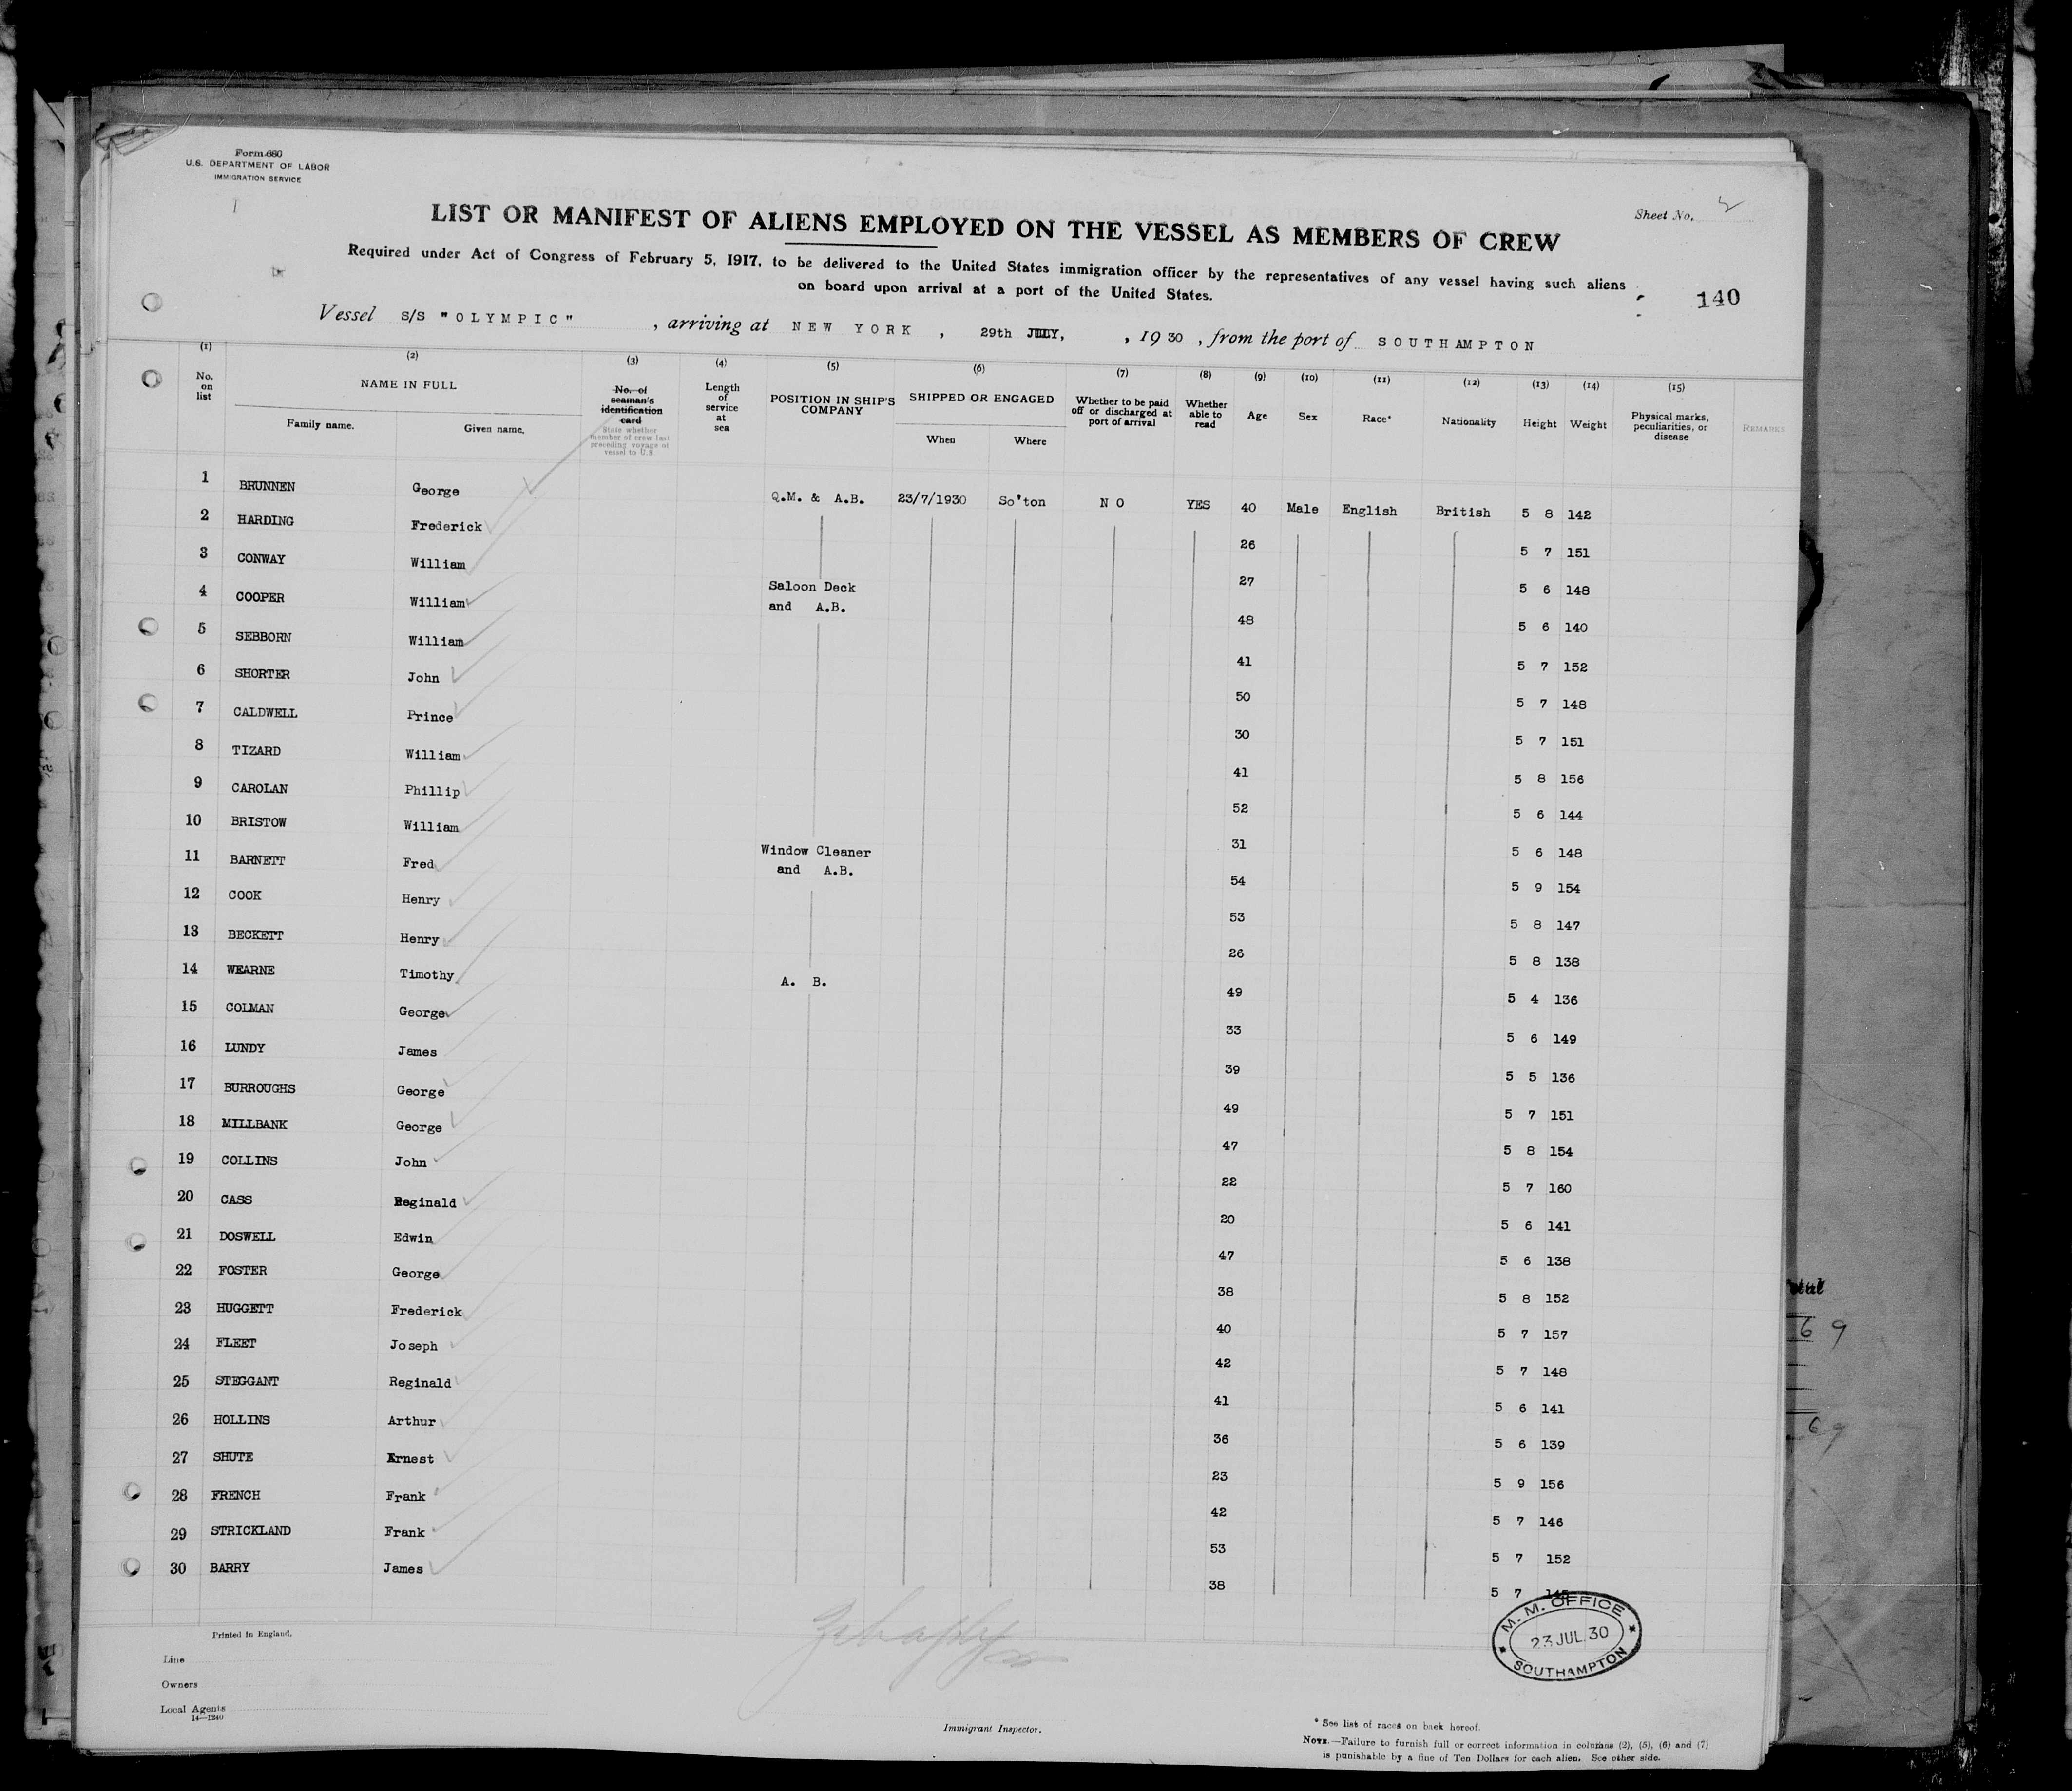 Form 680
U.S. DEPARTMENT OF LABOR
IMMIGRATION SERVICE
Sheet No. 2
LIST OR MANIFEST OF ALIENS EMPLOYED ON THE VESSEL AS MEMBERS OF CREW
Required under Act of Congress of February 5, 1917, to be delivered to the United States immigration officer by the representatives of any vessel having such aliens
on board upon arrival at a port of the United States.
140
Vessel S/S "OLYMPIC", arriving at NEW YORK, 29th JULY, , 1930, from the port of SOUTHAMPTON
(1) (2) (3) (4) (5) (6) (7) (8) (9) (10) (11) (12) (13) (14) (15)
No. on list NAME IN FULL Family name. Given name. No. of seaman's identification card State whether member of crew last preceding voyage of vessel to U.S. Length of service at sea POSITION IN SHIP'S COMPANY SHIPPED OR ENGAGED When Where Whether to be paid off or discharged at port of arrival Whether able to read Age Sex Race* Nationality Height Weight Physical marks, peculiarities, or disease REMARKS
1 BRUNNEN George Q.M. & A.B. 23/7/1930 So'ton NO YES 40 Male English British 5 8 142
2 HARDING Frederick 26 5 7 151
3 CONWAY William 27 5 6 148
4 COOPER William Saloon Deck and A.B. 48 5 6 140
5 SEBBORN William 41 5 7 152
6 SHORTER John 50 5 7 148
7 CALDWELL Prince 30 5 7 151
8 TIZARD William 41 5 8 156
9 CAROLAN Phillip 52 5 6 144
10 BRISTOW William 31 5 6 148
11 BARNETT Fred Window Cleaner and A.B. 54 5 9 154
12 COOK Henry 53 5 8 147
13 BECKETT Henry 26 5 8 138
14 WEARNE Timothy A. B. 49 5 4 136
15 COLMAN George 33 5 6 149
16 LUNDY James 39 5 5 136
17 BURROUGHS George 49 5 7 151
18 MILLBANK George 47 5 8 154
19 COLLINS John 22 5 7 160
20 CASS Reginald 20 5 6 141
21 DOSWELL Edwin 47 5 6 138
22 FOSTER George 38 5 8 152
23 HUGGETT Frederick 40 5 7 157
24 FLEET Joseph 42 5 7 148
25 STEGGANT Reginald 41 5 6 141
26 HOLLINS Arthur 36 5 6 139
27 SHUTE Ernest 23 5 9 156
28 FRENCH Frank 42 5 7 146
29 STRICKLAND Frank 53 5 7 152
30 BARRY James 38 5 7
M. M. OFFICE
23 JUL 30
SOUTHAMPTON
Printed in England.
Line
Owners
Local Agents
14—1240
Immigrant Inspector.
* See list of races on back hereof.
NOTE.—Failure to furnish full or correct information in columns (2), (5), (6) and (7)
is punishable by a fine of Ten Dollars for each alien. See other side.
69
69